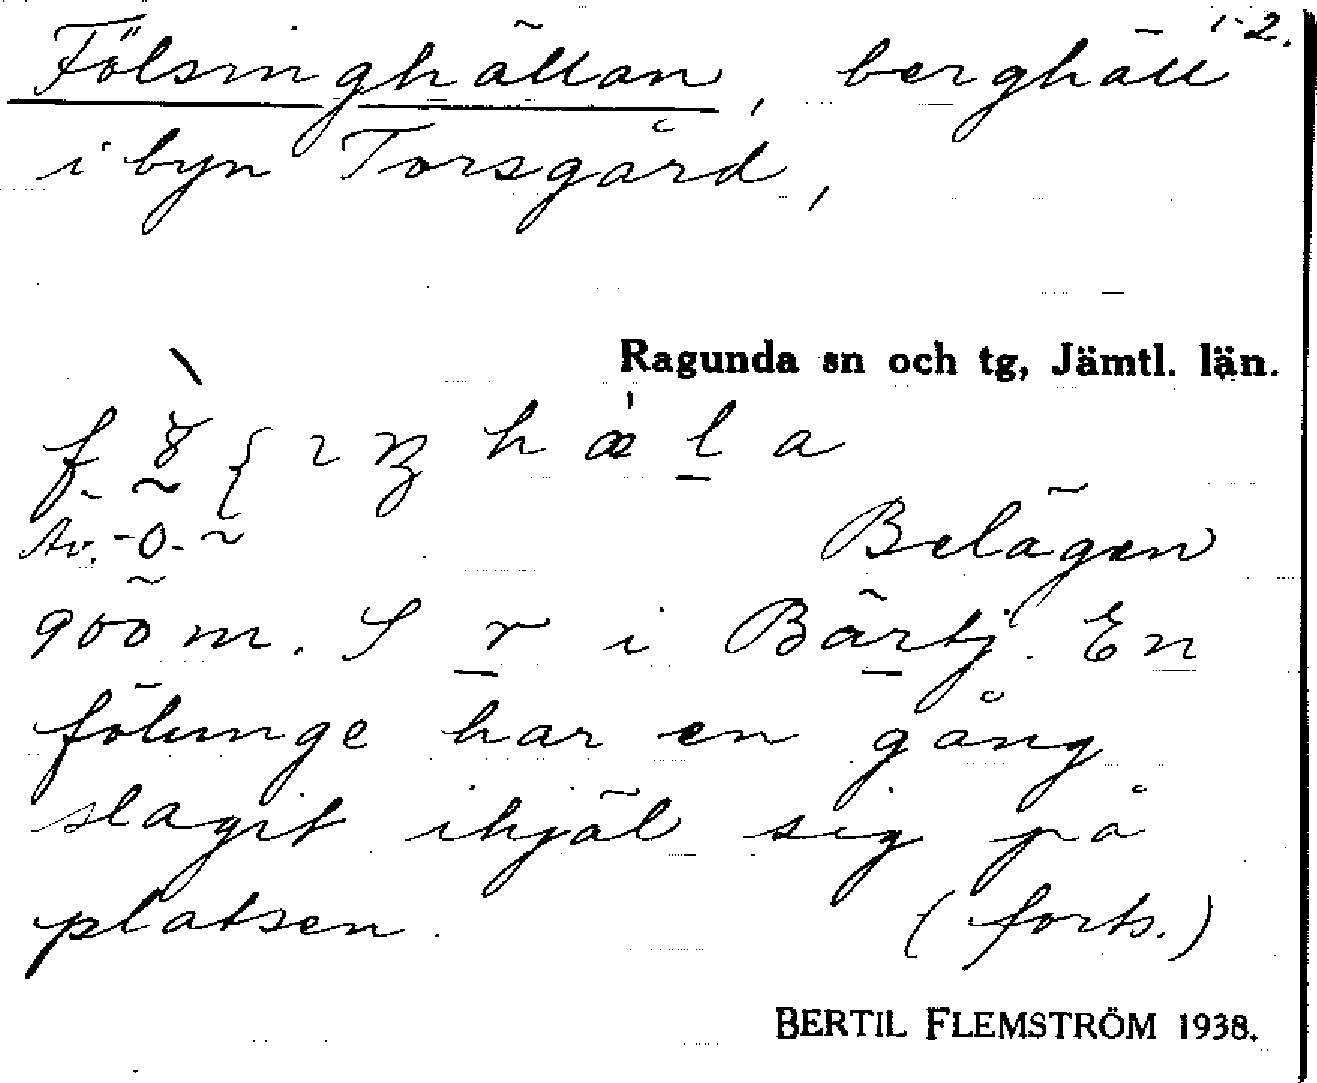 1-2.
Fölsinghällan, berghäll
i byn Torsgård,
Ragunda sn och tg, Jämtl. län.
Av. -o-
Belägen
900 m. S r i Bärtj. En
fölunge har en gång
slagit ihjäl sig på
platsen. (forts.)
BERTIL FLEMSTRÖM 1938.